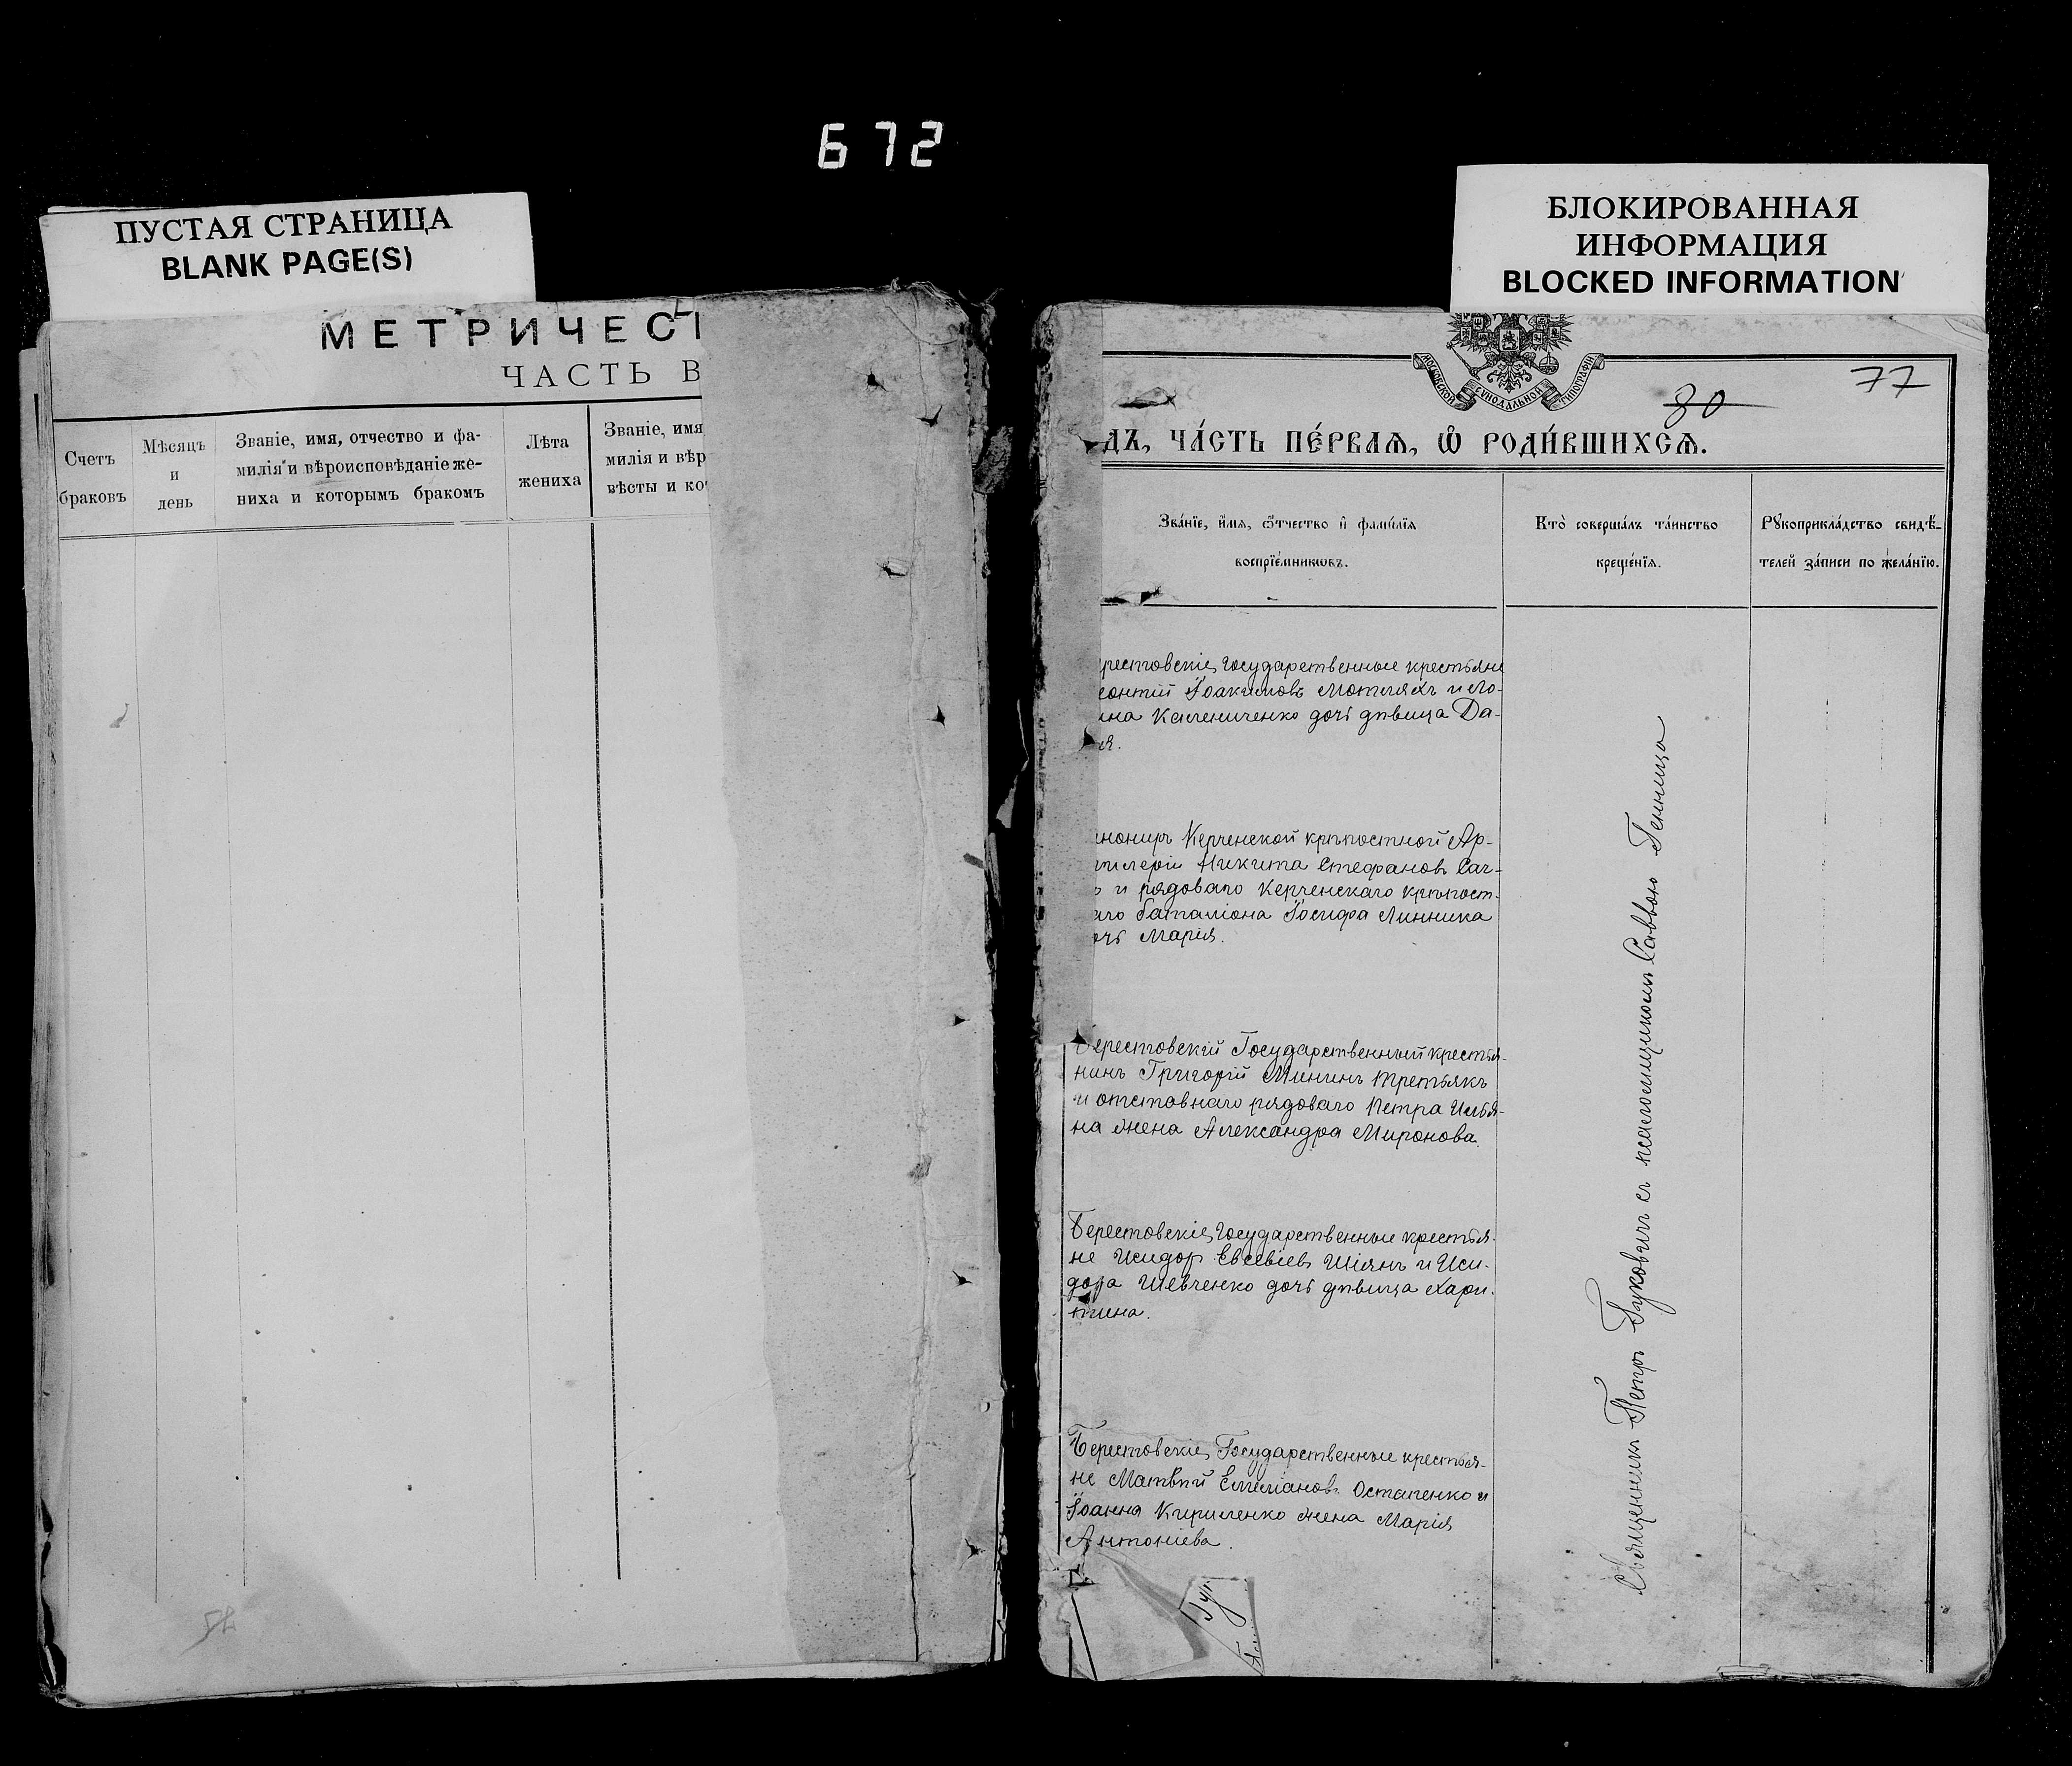 672
ПУСТАЯ СТРАНИЦА
BLANK PAGE(S)
МЕТРИЧЕС
ЧАСТЬ В
Счетъ
браковъ
Мѣсяцъ
и
день
Званіе, имя, отчество и фа-
милія и вѣроисповѣданіе же-
ниха и которымъ бракомъ
Лѣта
жениха
Званіе, имя
милія и вѣр
вѣсты и ко
БЛОКИРОВАННАЯ
ИНФОРМАЦИЯ
BLOCKED INFORMATION
МОСКОВСКОЙ СѴНОДАЛЬНОЙ ТИПОГРАФІИ
30
77
ДЪ, ЧА́СТЬ ПЕ́РВАѦ, Ѡ҆ РОДИ́ВШИХСѦ.
Зва́нїе, и҆́мѧ, ѻ҆́тчество и҆ фами́лїѧ
воспрїе́мникѡвъ.
Кто̀ соверша́лъ та́инство
креще́нїѧ.
Рꙋкоприкла́дство свидѣ́-
телей за́писи по жела́нїю.
рестовскіе Государственные крестьяне
еонтій Іоакимовъ Мотляхъ и Ло-
ина Калениченко дочь дѣвица Да-
ія.
нониръ Керченской крѣпостной Ар-
тилеріи Никита Стефановъ Сач-
ъ и рядоваго Керченскаго крѣпост-
аго баталіона Іосифа Линника
очь Марія.
Берестовскій Государственный крестья-
нинъ Григорій Мининъ Третьякъ
и отставнаго рядоваго Петра Илья-
на жена Александра Миронова.
Берестовскіе Государственные крестья-
не Исидоръ Евсевіевъ Шіянъ и Иси-
дора Шевченко дочь дѣвица Хари-
тина.
Берестовскіе Государственные крестья-
не Матвѣй Емиліановъ Остапенко и
Іоанна Кириленко жена Марія
Антоніева.
Священникъ Петръ Буковичъ съ псаломщикомъ Саввою Генница
Гу